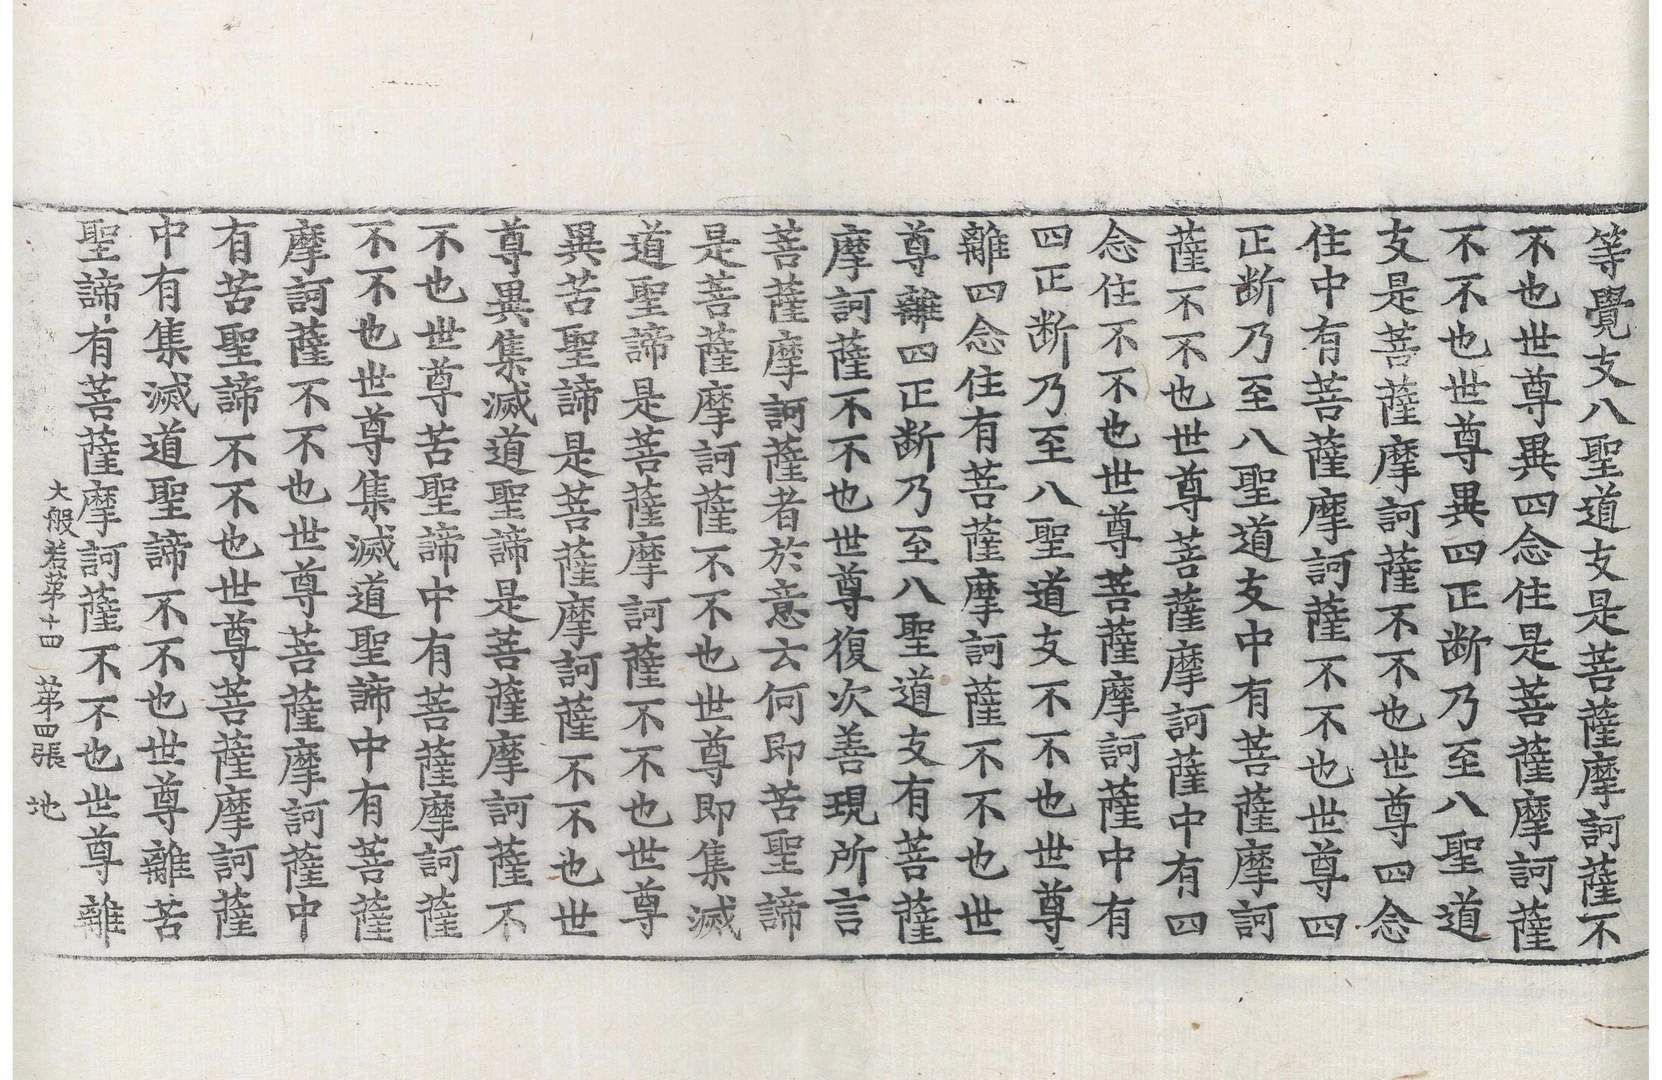 等覺支八聖道支是菩薩摩訶薩不
不也世尊異四念住是菩薩摩訶薩
不不也世尊異四正断乃至八聖道
支是菩薩摩訶薩不不也世尊四念
住中有菩薩摩訶薩不不也世尊四
正断乃至八聖道支中有菩薩摩訶
薩不不也世尊菩薩摩訶薩中有四
念住不不也世尊菩薩摩訶薩中有
四正断乃至八聖道支不不也世尊
離四念住有菩薩摩訶薩不不也世
尊離四正断乃至八聖道支有菩薩
摩訶薩不不也世尊復次善現所言
菩薩摩訶薩者於意云何即苦聖諦
是菩薩摩訶薩不不也世尊即集滅
道聖諦是菩薩摩訶薩不不也世尊
異苦聖諦是菩薩摩訶薩不不也世
尊異集滅道聖諦是菩薩摩訶薩不
不也世尊苦聖諦中有菩薩摩訶薩
不不也世尊集滅道聖諦中有菩薩
摩訶薩不不也世尊菩薩摩訶薩中
有苦聖諦不不也世尊菩薩摩訶薩
中有集滅道聖諦不不也世尊離苦
聖諦有菩薩摩訶薩不不也世尊離
大般若第十四 第四張 地